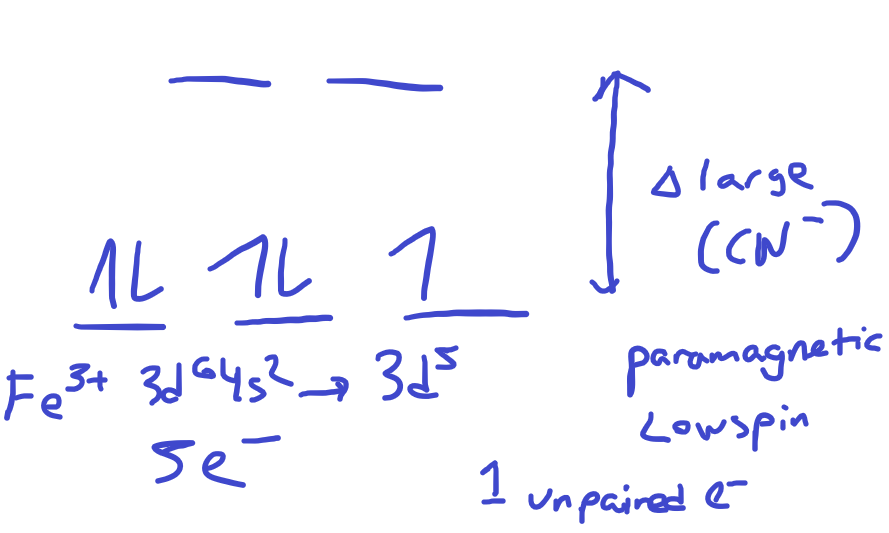 Δ large
(CN⁻)
1L 1L 1
Fe³⁺ 3d⁶4s² → 3d⁵
5e⁻
paramagnetic
Low spin
1 unpaired e⁻